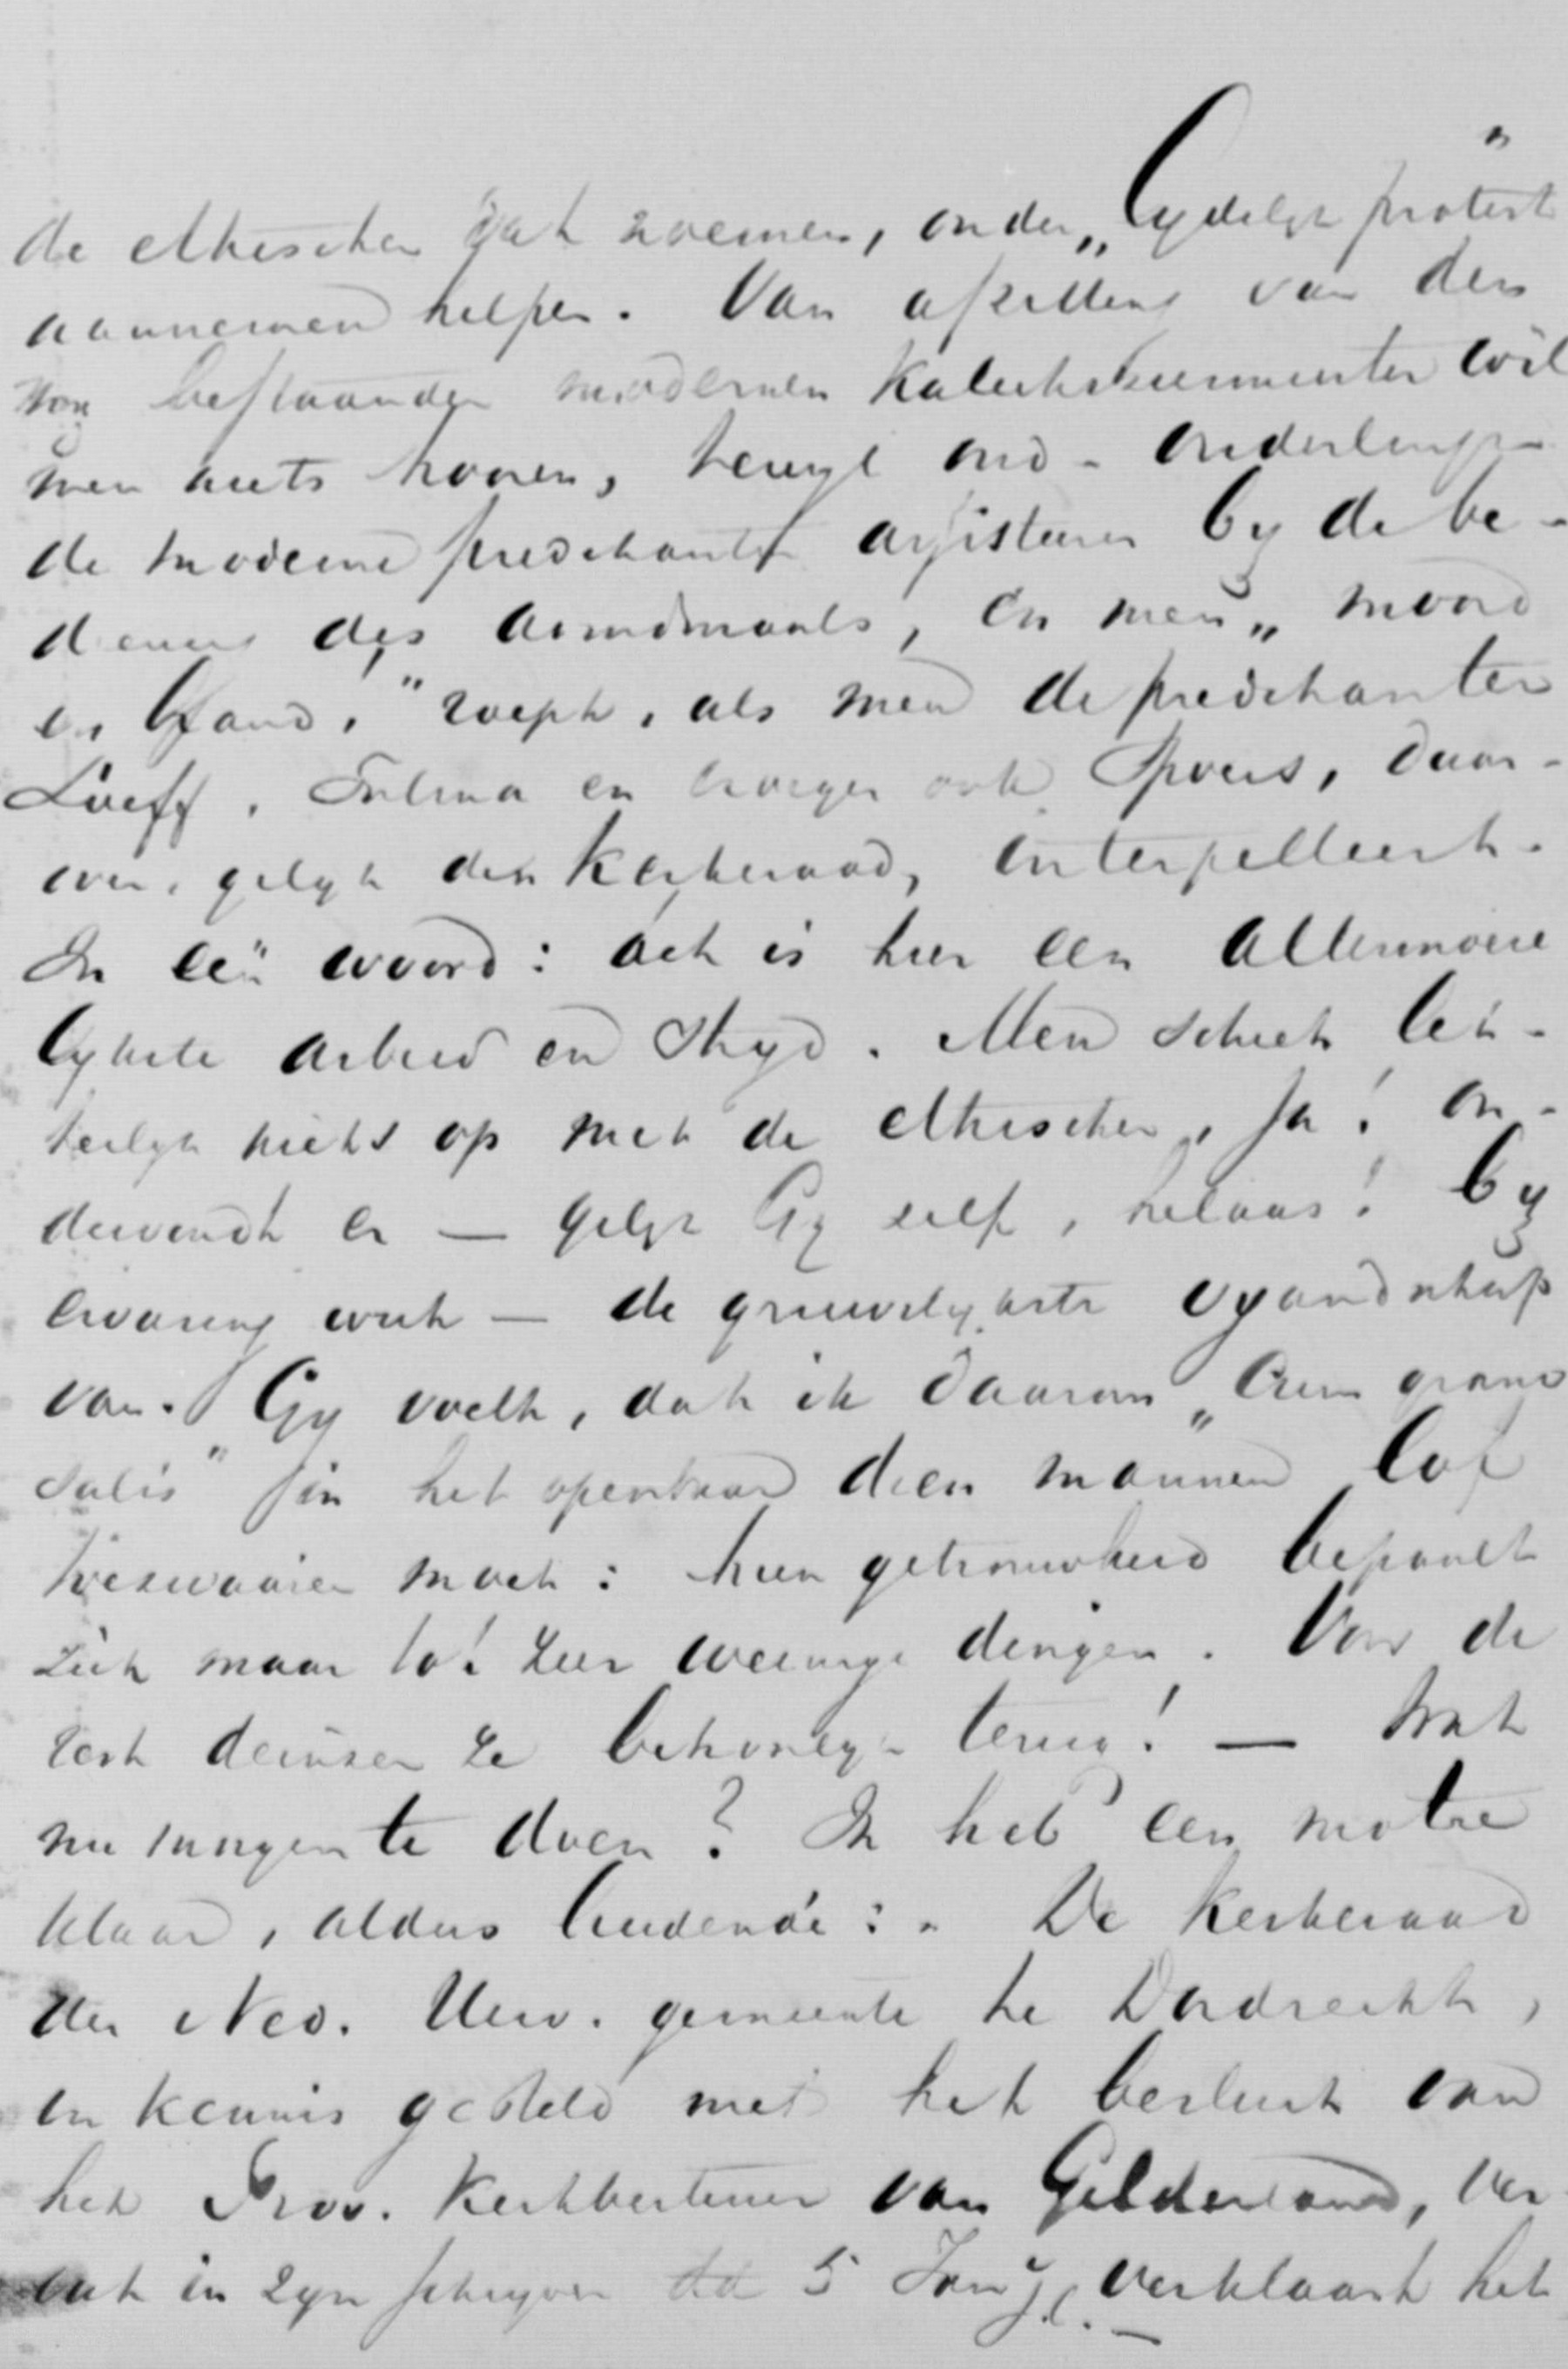 de ethischen dat noemen, onder „Lydelyk protest"
aannemen helpen. Van afzetting van den
nog bestaanden modernen Katechiseermeester wil
men niets hooren, terwyl oud-ouderlingen
de moderne predikanten assisteren by de be-
diening des avondmaals, en men „moord
en brand!" roept, als men de predikanten
Loeff, Talma en vroeger ook Spoors, daar-
over, gelyk den Kerkeraad, interpelleert.
In één woord: het is hier een allermoeie
lykste arbeid en stryd. Men schiet let-
terlyk niets op met de ethischen, ja! on-
dervindt er — gelyk Gy zelf, helaas! by
ervaring weet — de gruwelykste vyandschap
van. Gy voelt, dat ik daarom „cum grano
salis" in het openbaar dien mannen lof
toezwaaien moet: hun getrouwheid bepaalt
zich maar tot zeer weinige dingen. Voor de
rest deinzen ze terug! — Wat
nu te doen? Ik heb een motie
klaar, aldus luidende: „De Kerkeraad
der Ned. Herv. gemeente te Dordrecht,
in kennis gesteld met het besluit van
het Prov. Kerkbestuur van Gelderland, ver-
vat in zyn schryven dd 5 Jan j.l. verklaart het